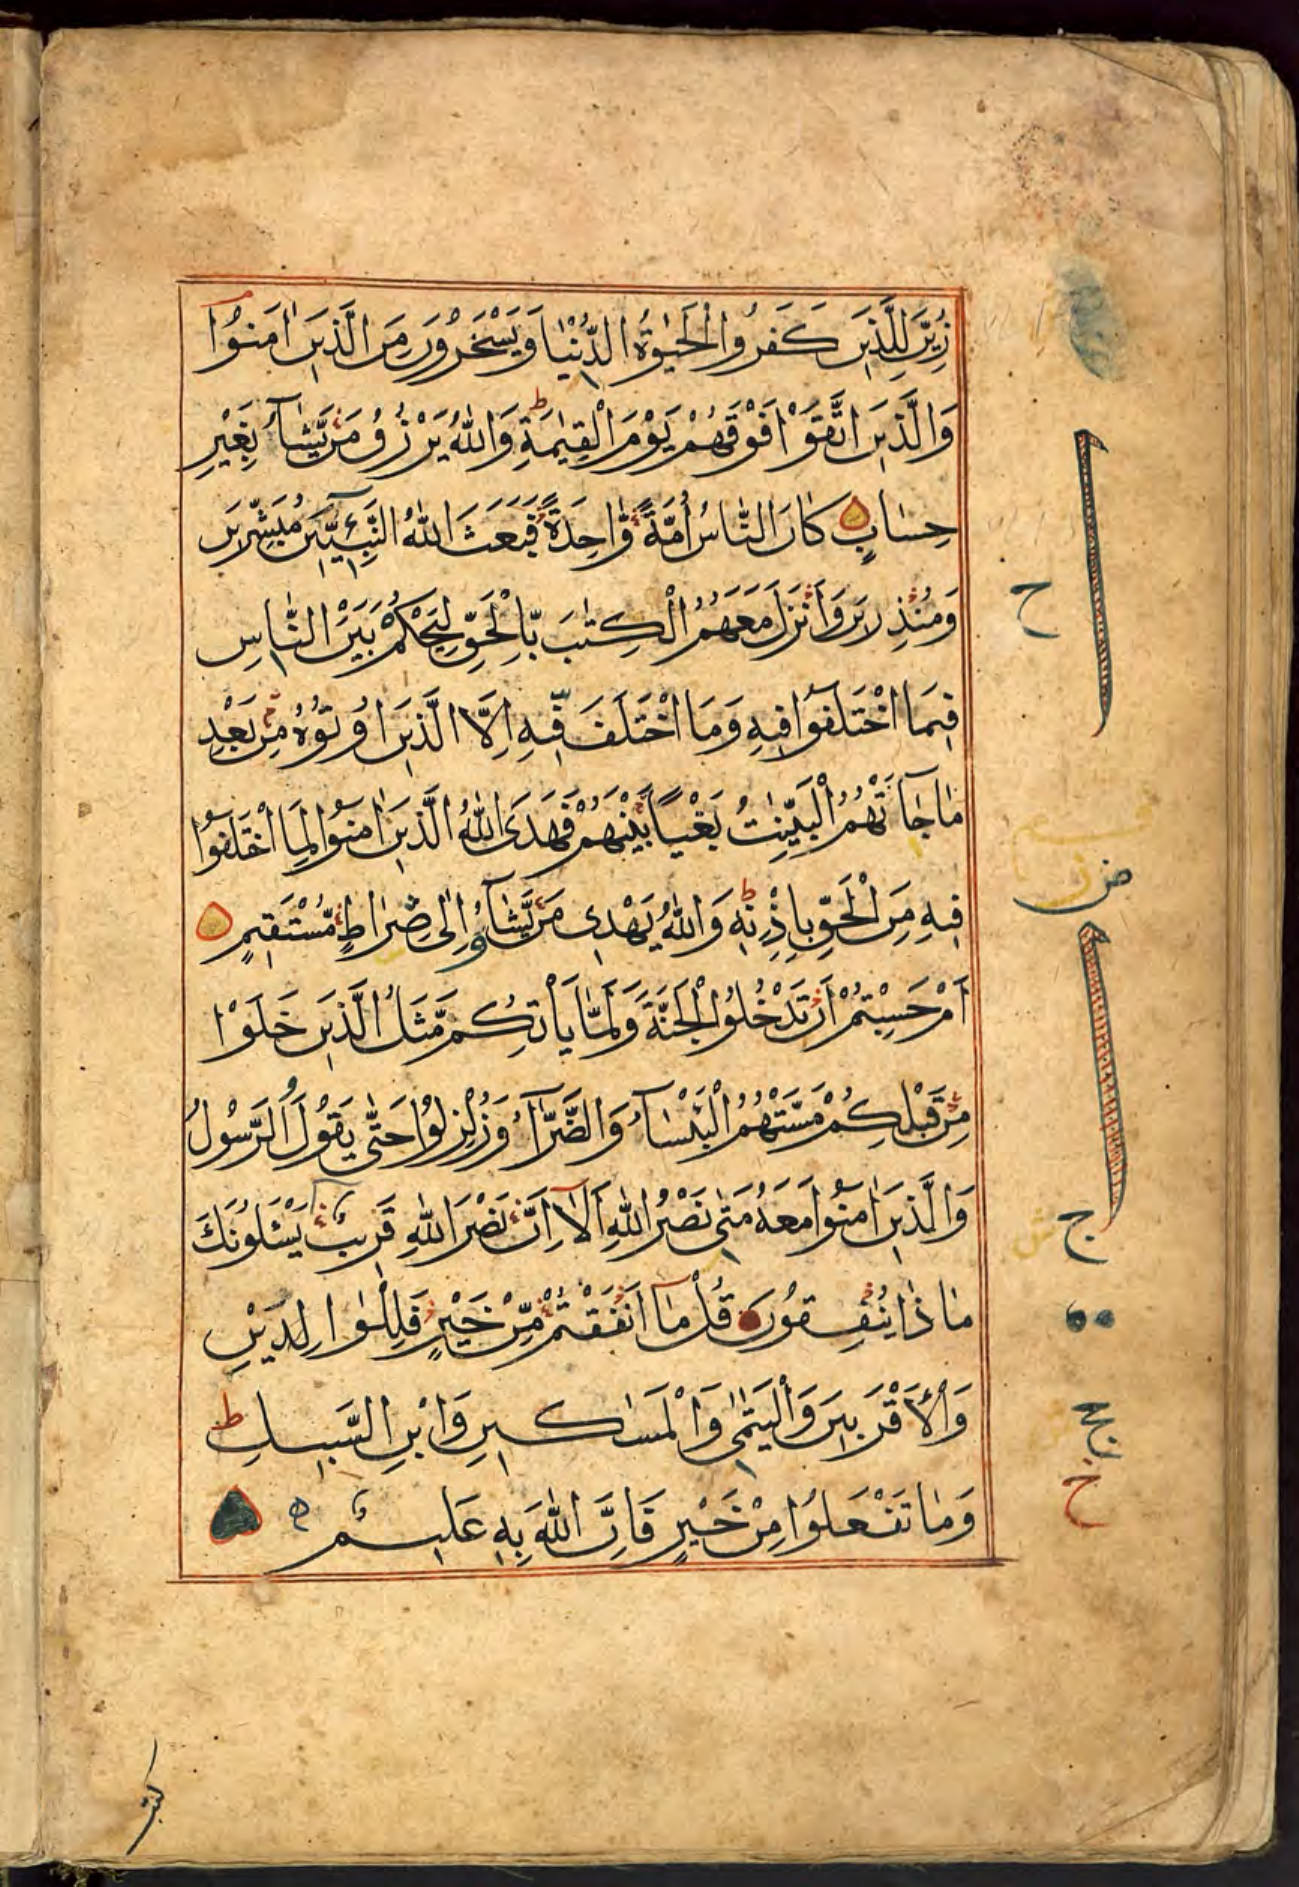 زُيِّنَ لِلَّذِينَ كَفَرُوا الْحَيٰوةُ الدُّنْيَا وَيَسْخَرُونَ مِنَ الَّذِينَ اٰمَنُوْا
وَالَّذِينَ اتَّقَوْا فَوْقَهُمْ يَوْمَ الْقِيٰمَةِ ط وَاللّٰهُ يَرْزُقُ مَنْ يَّشَآءُ بِغَيْرِ
حِسَابٍ كَانَ النَّاسُ اُمَّةً وَّاحِدَةً فَبَعَثَ اللّٰهُ النَّبِيّٖنَ مُبَشِّرِينَ
وَمُنْذِرِينَ وَاَنْزَلَ مَعَهُمُ الْكِتٰبَ بِالْحَقِّ لِيَحْكُمَ بَيْنَ النَّاسِ
فِيمَا اخْتَلَفُوْا فِيهِ وَمَا اخْتَلَفَ فِيهِ اِلَّا الَّذِينَ اُوتُوهُ مِنْ بَعْدِ
مَا جَآءَتْهُمُ الْبَيِّنٰتُ بَغْيًا بَيْنَهُمْ فَهَدَى اللّٰهُ الَّذِينَ اٰمَنُوْا لِمَا اخْتَلَفُوْا
فِيهِ مِنَ الْحَقِّ بِاِذْنِهٖ ط وَاللّٰهُ يَهْدِى مَنْ يَّشَآءُ اِلٰى صِرَاطٍ مُّسْتَقِيمٍ
اَمْ حَسِبْتُمْ اَنْ تَدْخُلُوا الْجَنَّةَ وَلَمَّا يَأْتِكُمْ مَّثَلُ الَّذِينَ خَلَوْا
مِنْ قَبْلِكُمْ مَسَّتْهُمُ الْبَأْسَآءُ وَالضَّرَّآءُ وَزُلْزِلُوْا حَتّٰى يَقُولَ الرَّسُولُ
وَالَّذِينَ اٰمَنُوْا مَعَهُ مَتٰى نَصْرُ اللّٰهِ اَلَآ اِنَّ نَصْرَ اللّٰهِ قَرِيبٌ يَسْـَٔلُونَكَ
مَاذَا يُنْفِقُونَ قُلْ مَآ اَنْفَقْتُمْ مِّنْ خَيْرٍ فَلِلْوَالِدَيْنِ
وَالْاَقْرَبِينَ وَالْيَتٰمٰى وَالْمَسَاكِينِ وَابْنِ السَّبِيلِ ط
وَمَا تَفْعَلُوْا مِنْ خَيْرٍ فَاِنَّ اللّٰهَ بِهٖ عَلِيمٌ
ح
ض
ج
ح
كتب